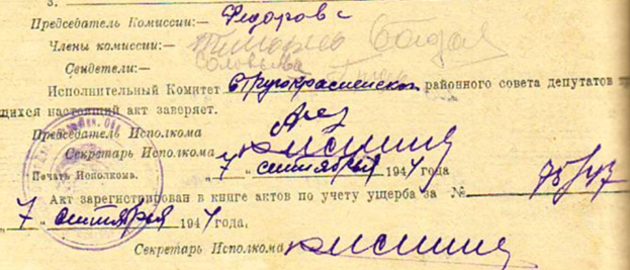 3.
Председатель Комиссии:— Федоров
Члены комиссии:—
Свидетели:— Соловьева
Исполнительный Комитет Стругокрасненского районного совета депутатов
щихся настоящий акт заверяет.
Председатель Исполкома
Секретарь Исполкома
Печать Исполкома. „7" сентября 1944 года
Акт зарегистрирован в книге актов по учету ущерба за № 75/47
„7" сентября 1944 года,
Секретарь Исполкома